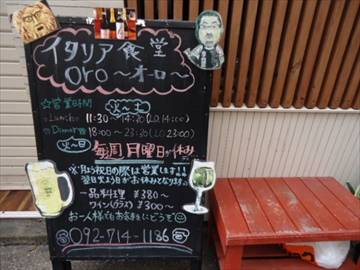 イタリア食堂
oro ～オーロ～
☆営業時間
火～土
☆Lunch☆ 11:30～14:30(L.O.14:00)
☆Dinner☆ 18:00～23:30(L.O.23:00)
毎週月曜日が休み
※月よう祝日の際は営業します!!
翌日火よう日がお休みとなります
一品料理 ¥380～
ワイン(グラス) ¥300～
お一人様でもお気軽にどうぞ
☎092-714-1186☎